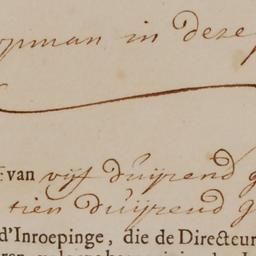 opman in deze
van vijf duijzend g
tien duijzend g
d'Inroepinge, die de Directeur